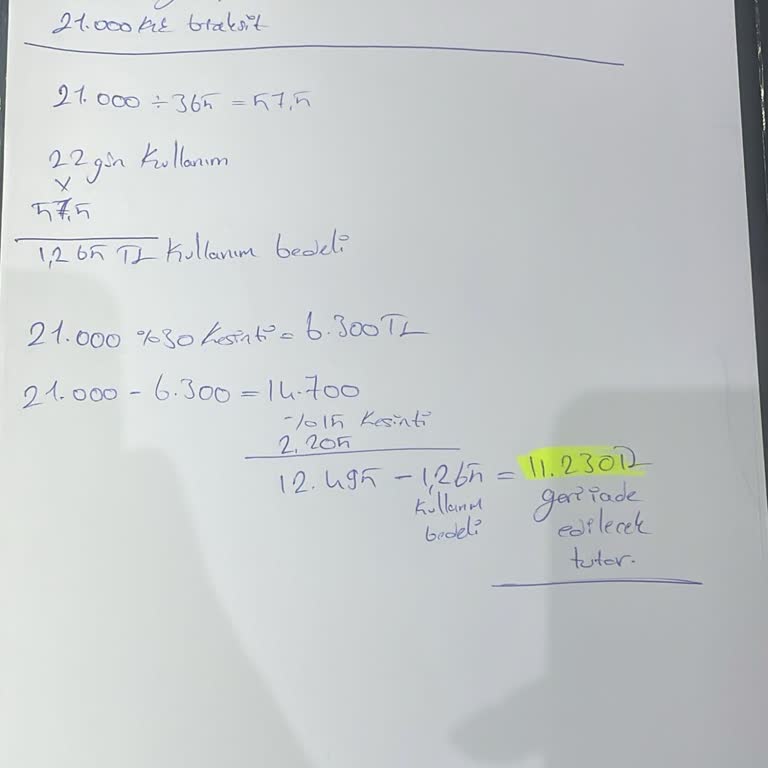 21.000 KK taksit
21.000 ÷ 365 = 57,5
22 gün Kullanım
x
57,5
1,265 TL Kullanım bedeli
21.000 %30 Kesinti = 6.300 TL
21.000 - 6.300 = 14.700
%15 Kesinti
2,205
12.495 - 1,265 = 11.230 TL
Kullanım
bedeli
geri iade
edilecek
tutar.